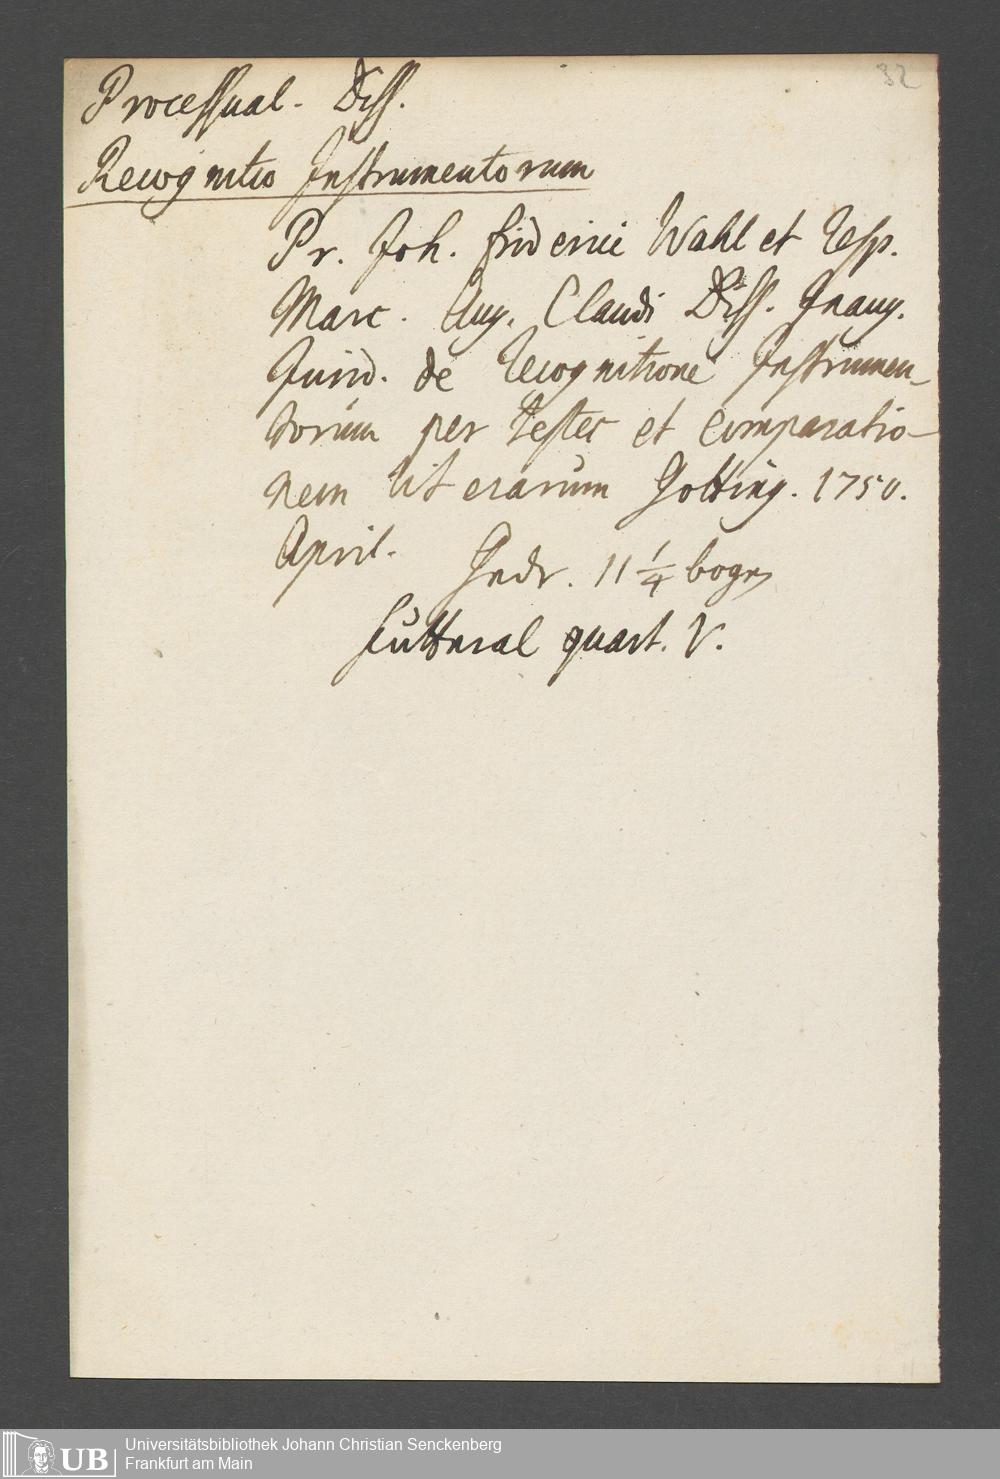 32
Processual. Diss.
Recognitio Instrumentorum
Pr. Joh. Friderici Wahl et Resp.
Marc. Aug. Claudi Diss. Inaug.
Jurid. de Recognitione Instrumen-
torum per testes et comparatio-
nem literarum Gotting. 1750.
April. Gedr. 11 1/4 bogen
Futteral quart. V.
UB
Universitätsbibliothek Johann Christian Senckenberg
Frankfurt am Main